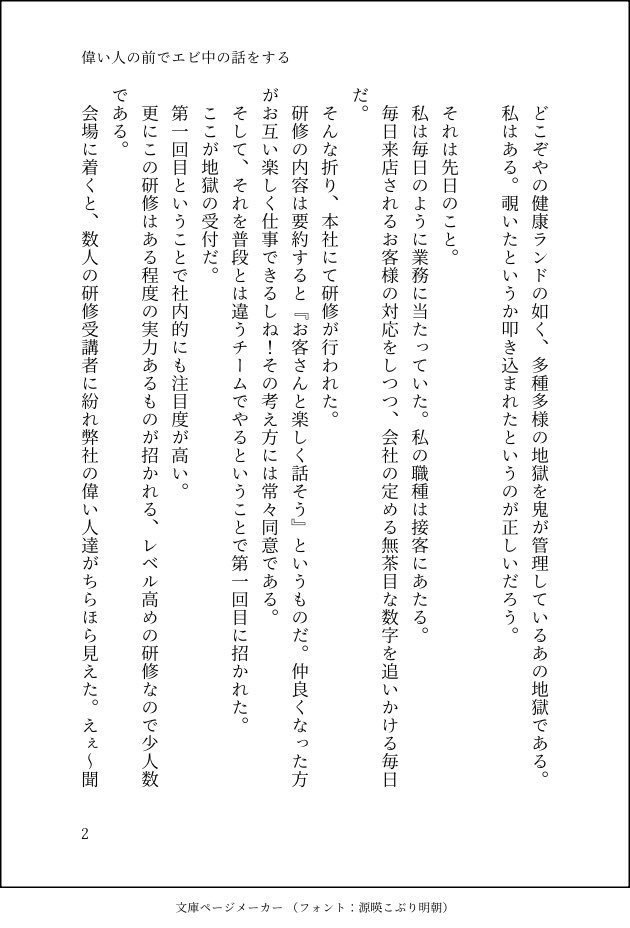 偉い人の前でエビ中の話をする
どこぞやの健康ランドの如く、多種多様の地獄を鬼が管理しているあの地獄である。
私はある。覗いたというか叩き込まれたというのが正しいだろう。
それは先日のこと。
私は毎日のように業務に当たっていた。私の職種は接客にあたる。
毎日来店されるお客様の対応をしつつ、会社の定める無茶目な数字を追いかける毎日
だ。
そんな折り、本社にて研修が行われた。
研修の内容は要約すると『お客さんと楽しく話そう』というものだ。仲良くなった方
がお互い楽しく仕事できるしね！その考え方には常々同意である。
そして、それを普段とは違うチームでやるということで第一回目に招かれた。
ここが地獄の受付だ。
第一回目ということで社内的にも注目度が高い。
更にこの研修はある程度の実力あるものが招かれる、レベル高めの研修なので少人数
である。
会場に着くと、数人の研修受講者に紛れ弊社の偉い人達がちらほら見えた。えぇ〜聞
2
文庫ページメーカー（フォント：源暎こぶり明朝）